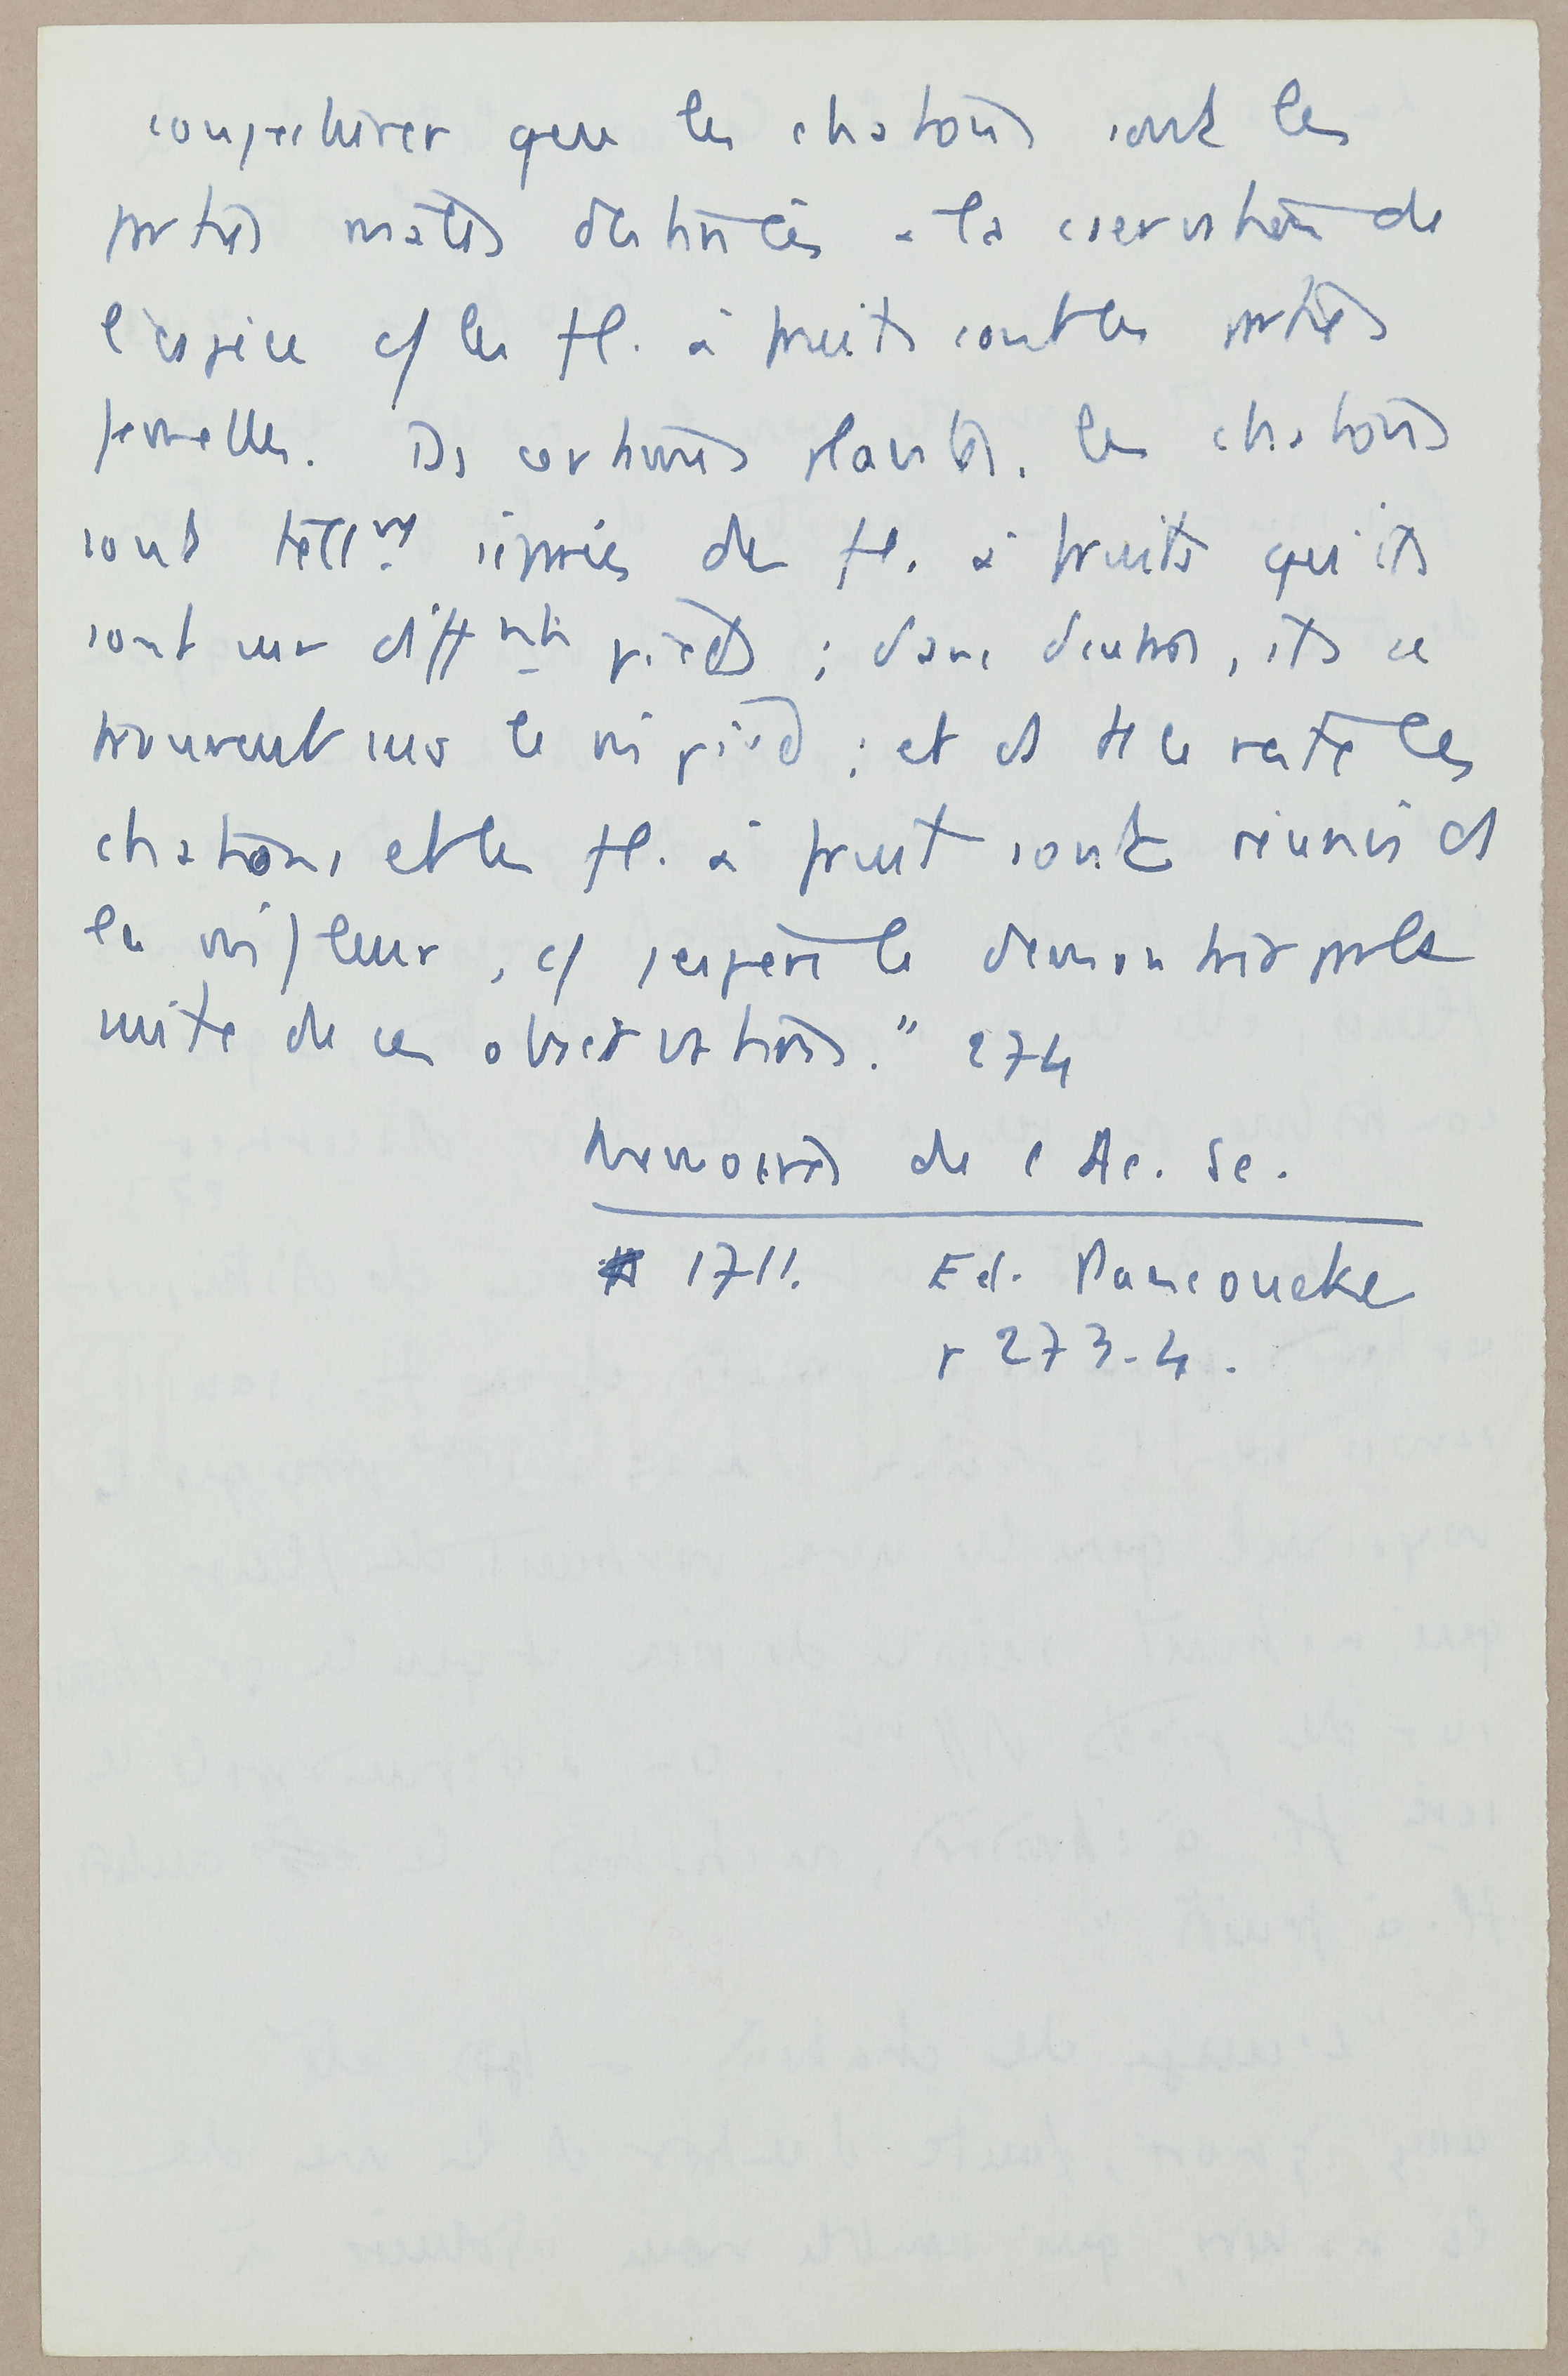 conjecturer que les chatons sont les
parties mâles destinées à la conservation de
l'espèce c/ les fl. à fruits sont les parties
femelles. Ds certaines plantes, les chatons
sont tellmt séparés des fl. à fruits qu'ils
sont sur diffnts pieds ; dans d'autres, ils se
trouvent sur le m pied ; et ds tt le reste les
chatons et les fl. à fruit sont réunis ds
la m fleur, c/ j'espère le démontrer par la
suite de ces observations." 274
Memoires de l Ac. Sc.
1711. Ed. Panckoucke
p 273-4.